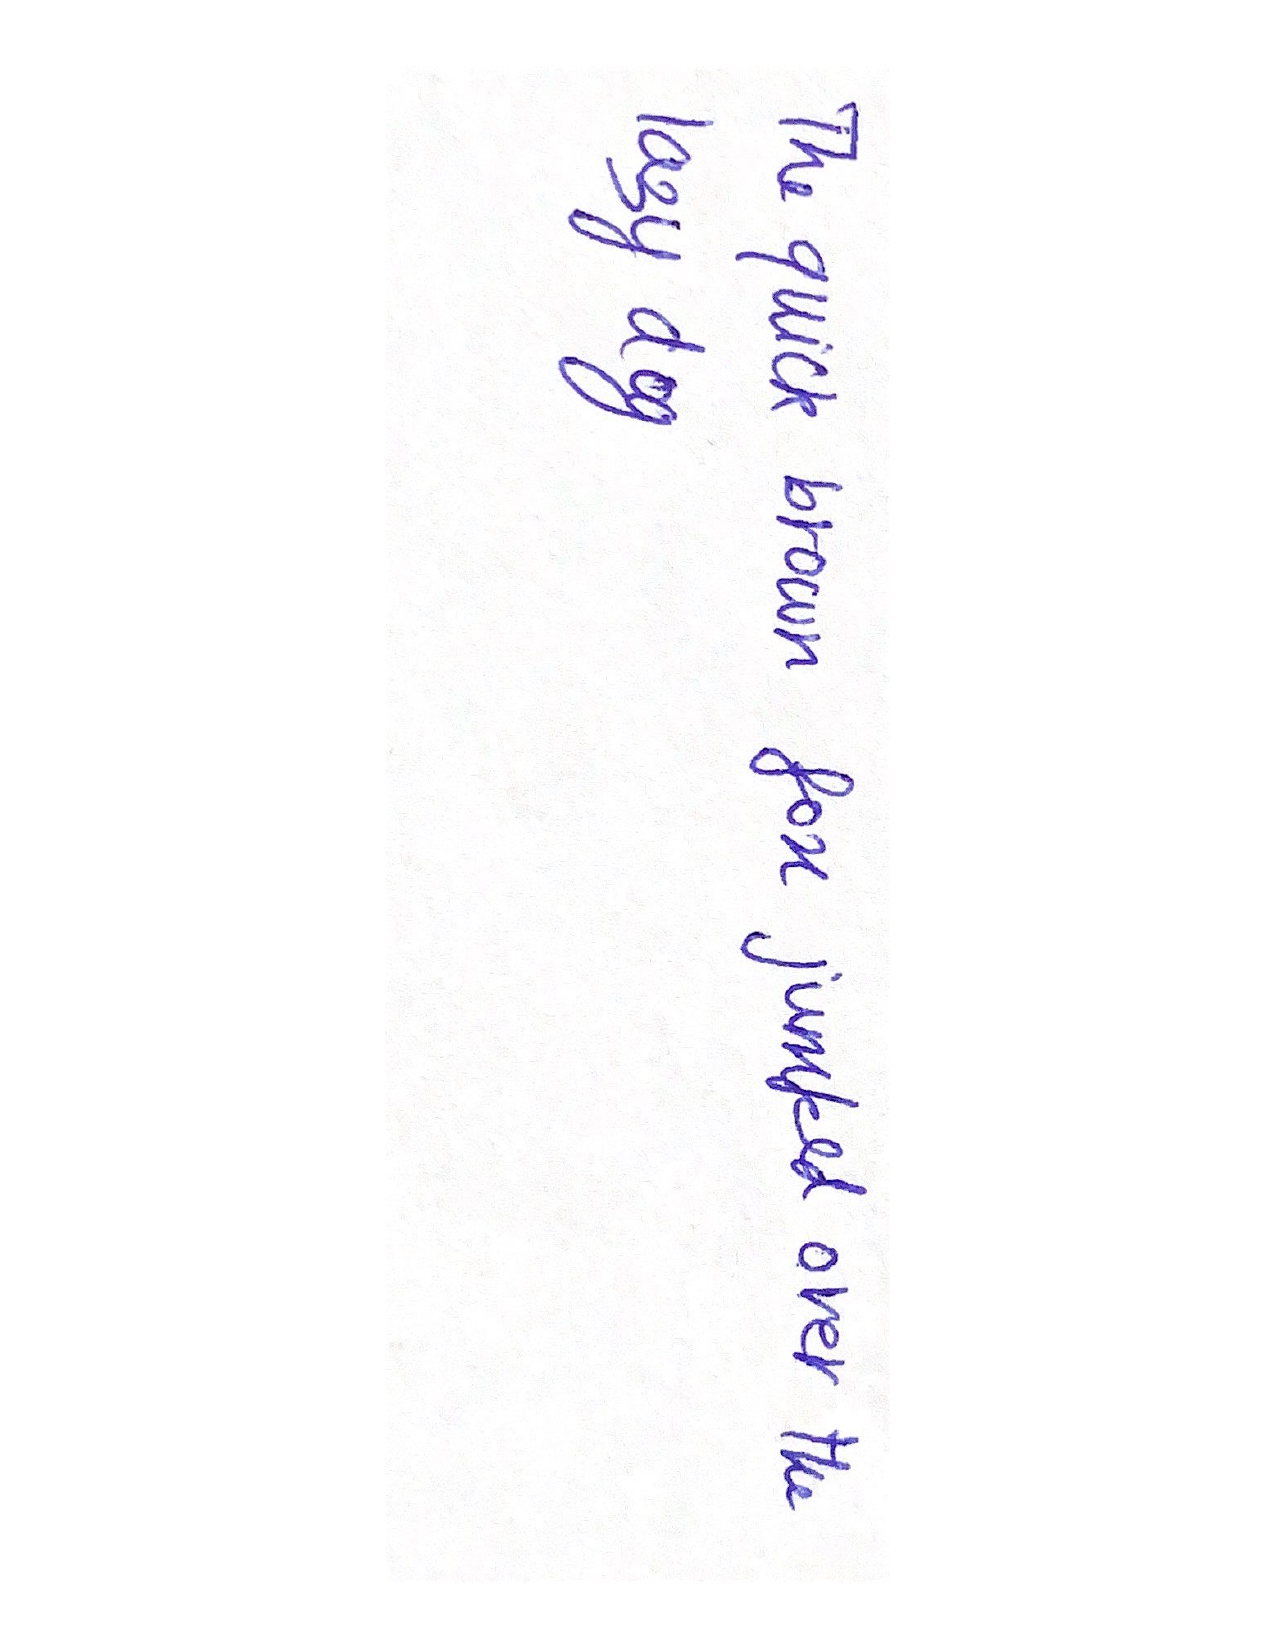 The quick brown fox jumped over the
lazy dog